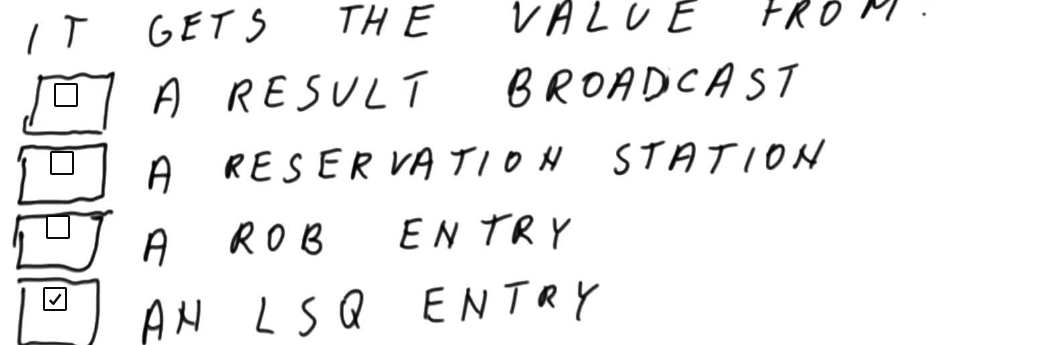 IT GETS THE VALUE FROM:
A RESULT BROADCAST
A RESERVATION STATION
A ROB ENTRY
AN LSQ ENTRY